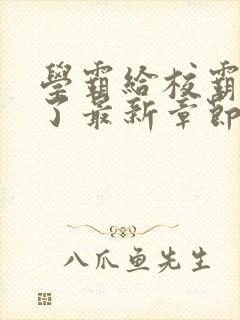 學霸給校霸
了最新章節
八爪鱼先生